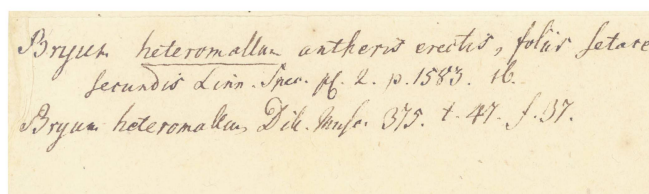 Bryum heteromallum antheris erectis, foliis setace
secundis Linn. Spec. pl. 2. p. 1583. 16.
Bryum heteromallum Dill. Musc. 375. t. 47. f. 37.